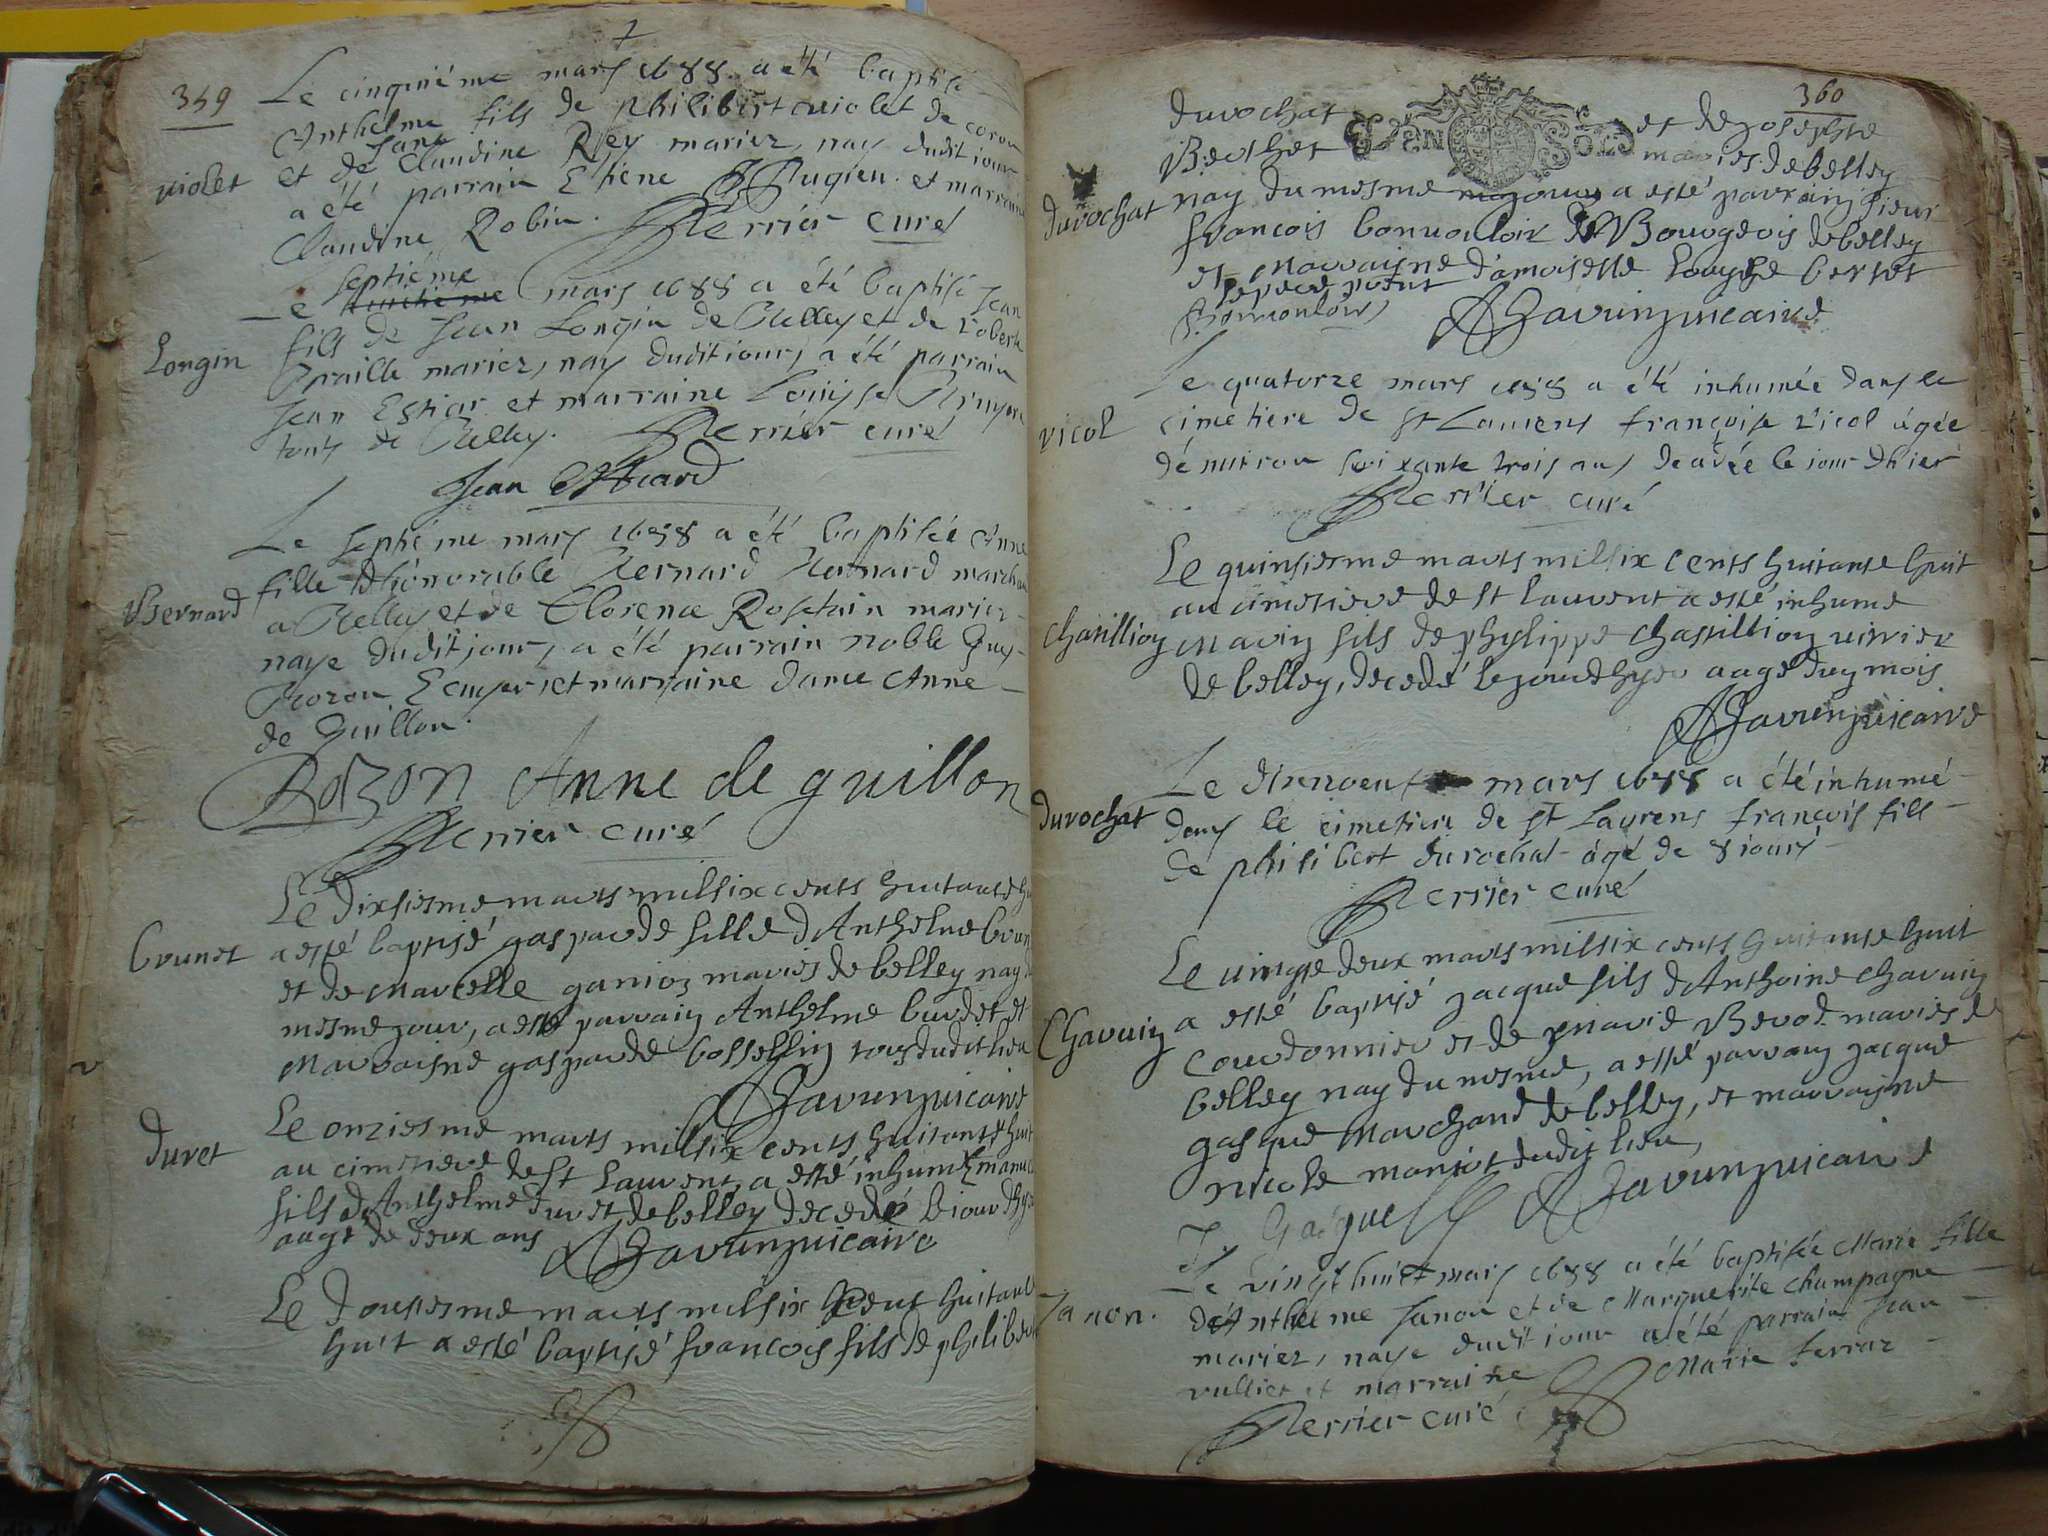 359
Le cinqiéme mars 1688 a été baptisé
Anthelme fils de philibert violet de coron
Jane
et de Claudine Rey mariez, nay dudit iour
violet
a été parrain Etiene Pugieu et marraine
Claudine Robin. Perrier curé
septiéme
Le huitiéme mars 1688 a été baptisé Jean
fils de Jean Longin de Belley et de roberte
Longin
mariez, nay dudit iour, a été parrain
Jean et marraine Louyse
touts de Belley. Perrier curé
Jean
Le septiéme mars 1688 a été baptisée Anne
fille d'honorable Bernard Bernard marchan
Bernard
a Belley et de Clorence Rostain mariez
naye dudit jour, a été parrain noble Guy
Rozon Ecuyer et marraine dame Anne
de Guillon.
Rozon Anne de guillon
Perrier curé
Le dixsiesme mars mil six cents huitante hu
brunet
a esté baptisé gasparde fille d'Anthelme brun
et de Marcelle mariés de belley nay du
mesme jour, a esté parrain Anthelme burdet et
Marraisne gasparde bossellin tous dudit lieu
Favrin vicaire
Le onziesme mars mil six cents huitante huit
duret
au cimetiere de St Laurent, a esté inhumé Emanuel
fils d'Anthelme duret de belley decedé le iour d'hyer
augé de deux ans Favrin vicaire
Le dousiesme mars mil six cent huitante
huit a esté baptisé francois fils de philibert
360
durochat et de Josephte
Berthet mariés de belley
DEN SOLS
durochat
nay du mesme jour a esté parrain sieur
francois bonuouloir Bourgeois de belley
et Marraisne d'amoiselle Louyse bertet
Favrin vicaire
Le quatorze mars 1688 a été inhumée dans le
vicol
cimetiere de St Laurens françoise vicol agée
d'enuiron soixante trois ans decedée le iour d'hier
Perrier curé
Le quinsiesme mars mil six cents huitante huit
au cimetiere de St Laurent a esté inhumé
Chatillion
Marin fils de phylippe chastillion uitrier
de belley, decedé le jour d'hyer augé d'un mois
Favrin vicaire
Le dixnoeuf mars 1688 a été inhumé
durochat
dans le cimetiere de St Laurens françois fils
de philibert durochat agé de 8 iours
Perrier curé
Le uingte deux mars mil six cents huitante huit
a esté baptisé Jacque fils d'Anthoine chavuin
Chavuin
courdonnier et de Marie Berod mariés de
belley nay du mesme, a esté parrain Jacque
gasque Marchand de belley, et marraisne
nicole marjot dudit lieu,
J. Gasque Favrin vicaire
Le vingt huict mars 1688 a été baptisée Marie fille
Janon.
d'Anthelme Janon et de Marguerite champagne
mariez, naye dudit iour a été parrain Jean
vulliet et marraine Marie ferraz
Perrier curé